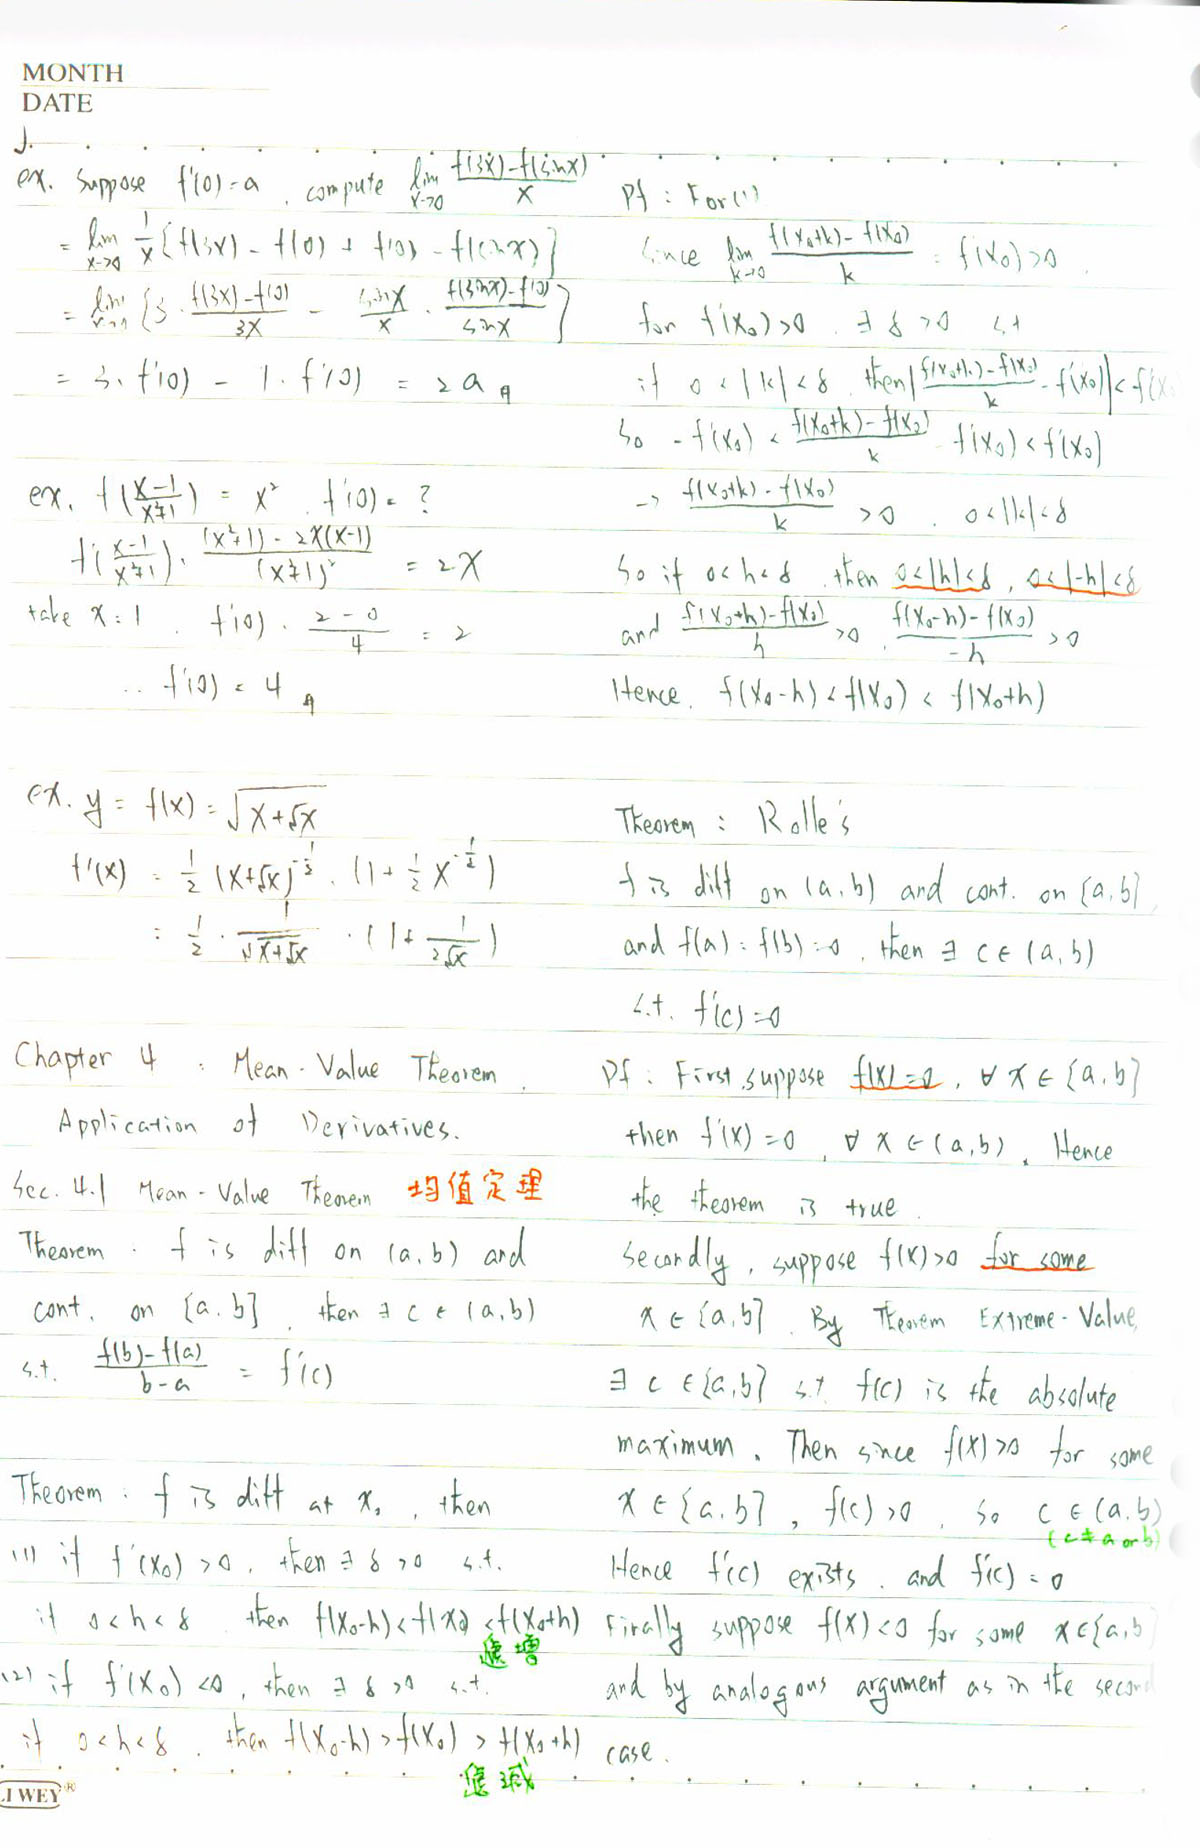 MONTH
DATE
J.
ex. Suppose f'(0)=a, compute lim_{x→0} (f(3x)-f(sinx))/x
= lim_{x→0} 1/x {f(3x) - f(0) + f(0) - f(sinx)}
= lim_{x→0} {3 · (f(3x)-f(0))/3x - sinx/x · (f(sinx)-f(0))/sinx}
= 3. f'(0) - 1. f'(0) = 2a
ex. f((x-1)/(x²+1)) = x², f'(0) = ?
f'((x-1)/(x²+1)) · ((x²+1) - 2x(x-1))/(x²+1)² = 2x
take x=1, f'(0) · (2-0)/4 = 2
∴ f'(0) = 4
ex. y = f(x) = √(x+√x)
f'(x) = 1/2 (x+√x)^{-1/2} · (1+ 1/2 x^{-1/2})
= 1/2 · 1/√(x+√x) · (1+ 1/(2√x))
Chapter 4 : Mean-Value Theorem,
Application of Derivatives.
Sec. 4.1 Mean-Value Theorem 均值定理
Theorem : f is diff on (a,b) and
cont. on [a,b], then ∃ c ∈ (a,b)
s.t. (f(b)-f(a))/(b-a) = f'(c)
Theorem : f is diff at x₀, then
(1) if f'(x₀) >0, then ∃ δ >0 s.t.
if 0<h<δ, then f(x₀-h)<f(x₀)<f(x₀+h)
遞增
(2) if f'(x₀) <0, then ∃ δ >0 s.t.
if 0<h<δ, then f(x₀-h)>f(x₀) > f(x₀+h)
遞減
Pf : For (1)
Since lim_{k→0} (f(x₀+k)-f(x₀))/k = f'(x₀) >0,
for f'(x₀) >0, ∃ δ >0 s.t
if 0 < |k| < δ, then |(f(x₀+k)-f(x₀))/k - f'(x₀)| < f'(x₀)
So -f'(x₀) < (f(x₀+k)-f(x₀))/k - f'(x₀) < f'(x₀)
→ (f(x₀+k)-f(x₀))/k >0, 0<|k|<δ
So if 0<h<δ, then 0<|h|<δ, 0<|-h|<δ
and (f(x₀+h)-f(x₀))/h >0, (f(x₀-h)-f(x₀))/-h >0
Hence, f(x₀-h) < f(x₀) < f(x₀+h)
Theorem : Rolle's
f is diff on (a,b) and cont. on [a,b],
and f(a)=f(b)=0, then ∃ c ∈ (a,b)
s.t. f'(c)=0
Pf : First, suppose f(x)=0, ∀ x ∈ [a,b]
then f'(x)=0, ∀ x ∈ (a,b), Hence
the theorem is true.
Secondly, suppose f(x)>0 for some
x ∈ [a,b]. By Theorem Extreme-Value,
∃ c ∈ [a,b] s.t f(c) is the absolute
maximum. Then since f(x)>0 for some
x ∈ [a,b], f(c)>0, so c ∈ (a,b)
(c≠a or b)
Hence f'(c) exists, and f'(c)=0
Finally suppose f(x)<0 for some x∈[a,b]
and by analogous argument as in the second
case.
J WEY®